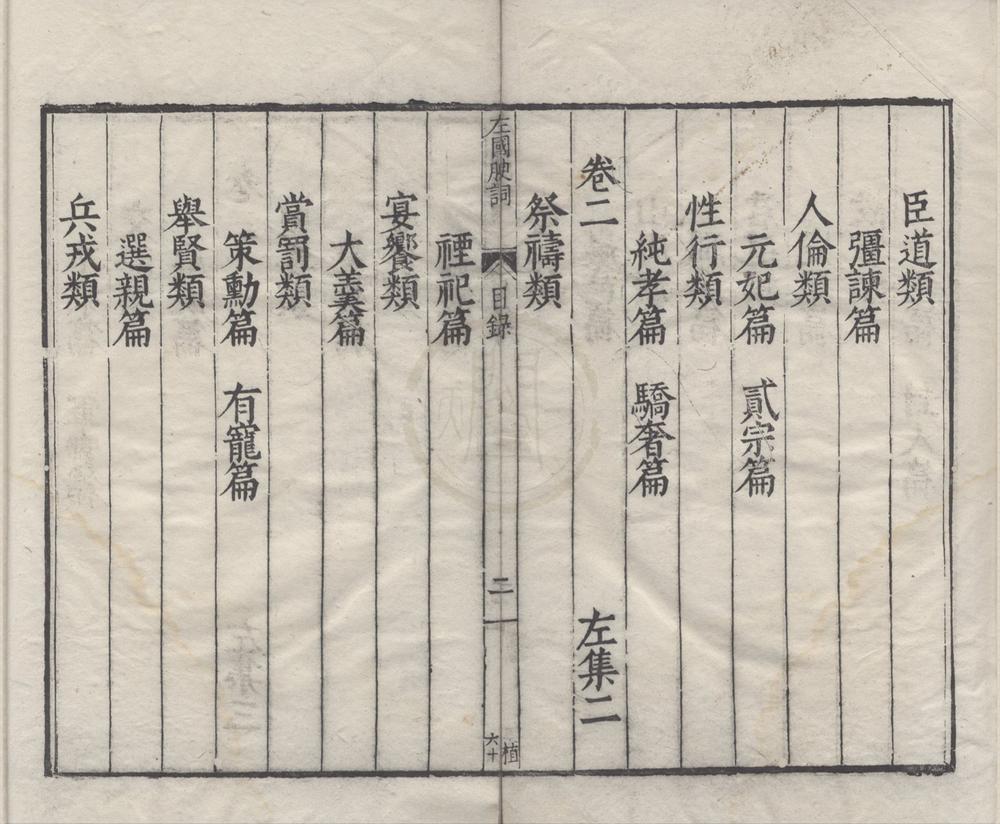 臣道類
彊諫篇
人倫類
元妃篇 貳宗篇
性行類
純孝篇 驕奢篇
卷二 左集二
祭禱類
左國腴詞 目録 二 植 六十
禋祀篇
宴饗類
大羹篇
賞罰類
策勳篇 有寵篇
舉賢類
選親篇
兵戎類